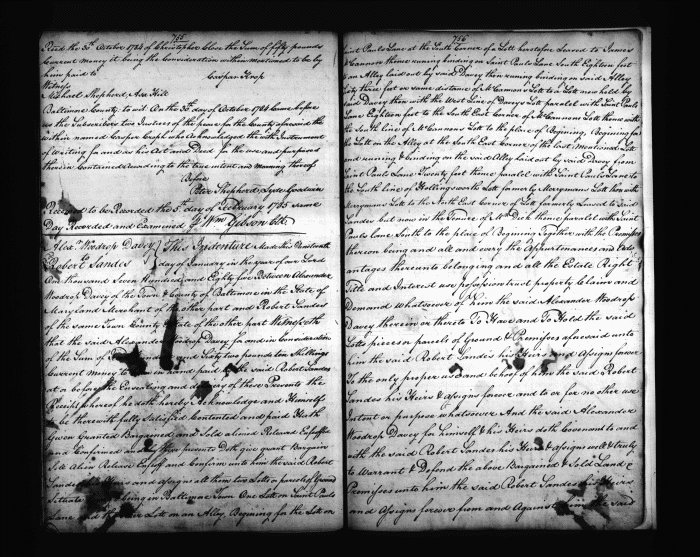 755
Recd the 30th October 1784 of Christopher Close the Sum of fifty pounds
Current money it being the Consideration within mentioned to be by
him paid to Caspar Gross
Witness
Michael Shepherd, Asa Hill
Baltimore County to wit On the 30th day of October 1784 Came before
us the Subscribers two Justices of the peace for the County aforesaid the
within named Caspar Graph who Acknowledged the within Instrument
of Writing to be his Act and Deed for the uses and purposes
therein Contained According to the true intent and Meaning thereof
Before
Peter Shepherd, Lyde Goodwin
Received to be Recorded the 5th day of February 1785 same
Day Recorded and Examined Wm Gibson Clk
Alexr Woodrop Davey
Robert Sandes
This Indenture Made this Nineteenth
day of January in the year of our Lord
One thousand Seven Hundred and Eighty five Between Alexander
Woodrop Davey of the Town & County of Baltimore in the State of
Maryland Merchant of the other part and Robert Sandes
of the same Town County & State of the other part Witnesseth
that the said Alexander Woodrop Davey for and in Consideration
of the Sum of and Sixty two pounds ten Shillings
Current Money to and paid the said Robert Sandes
at & before the Ensealing and delivery of these Presents the
Receipt whereof he doth hereby Acknowledge and Himself
be thereunto fully Satisfied Contented and paid Hath
Given Granted Bargained and Sold aliened Released Enfeoffed
and Confirmed and by these presents Doth give grant Bargain
Sell Alien Release Enfeoff and Confirm unto him the said Robert
Sandes Heirs and assigns all them two Lotts or parcels of Ground
Situate being in Baltimore Town One Lott on Saint Pauls
Lane and the other Lott on an Alley, Begining for the Lott on
756
Saint Pauls Lane at the South Corner of a Lott heretofore Leased to James
McCannon thence running & binding on Saint Pauls Lane South Eighteen feet
to an Alley laid out by said Davey then running & binding on said Alley
Sixty three feet or same distance of McCannons Lott to a Lott now held by
said Davey then with the West Line of Daveys Lott parallel with Saint Pauls
Lane Eighteen feet to the South East Corner of McCannons Lott thence with
the South line of McCannons Lott to the place of Begining, Begining for
the Lott on the Alley at the South East Corner of the last Mentioned Lott
and running & binding on the said Alley laid out by said Davey from
Saint Pauls Lane Twenty feet thence parallel with St Pauls Lane to
the South line of Hollingsworths Lott formerly Merrymans Lott then with
Merrymans Lott to the North East Corner of Lott formerly Leased to Said
Sandes but now in the Tenure of Mr Dick thence parallel with Saint
Pauls Lane South to the place of Begining Together with the Premises
thereon being and all and every the Appurtenances and Adv
antages thereunto belonging and all the Estate Right
Title and Interest use possession trust property Claim and
Demand whatsoever of him the said Alexander Woodrop
Davey therein or thereto To Have and To Hold the said
Lotts pieces or parcels of Ground & Premises aforesaid unto
him the said Robert Sandes his Heirs and Assigns forever
To the only proper use and behoof of him the said Robert
Sandes his Heirs & assigns forever and to or for no other use
Intent or purpose whatsoever And the said Alexander
Woodrop Davey for himself & his Heirs doth Covenant to and
with the said Robert Sandes his Heirs & assigns well & truly
to Warrant & Defend the above Bargained & Sold Land &
Premises unto him the said Robert Sandes his Heirs
and Assigns forever from and Against him the said